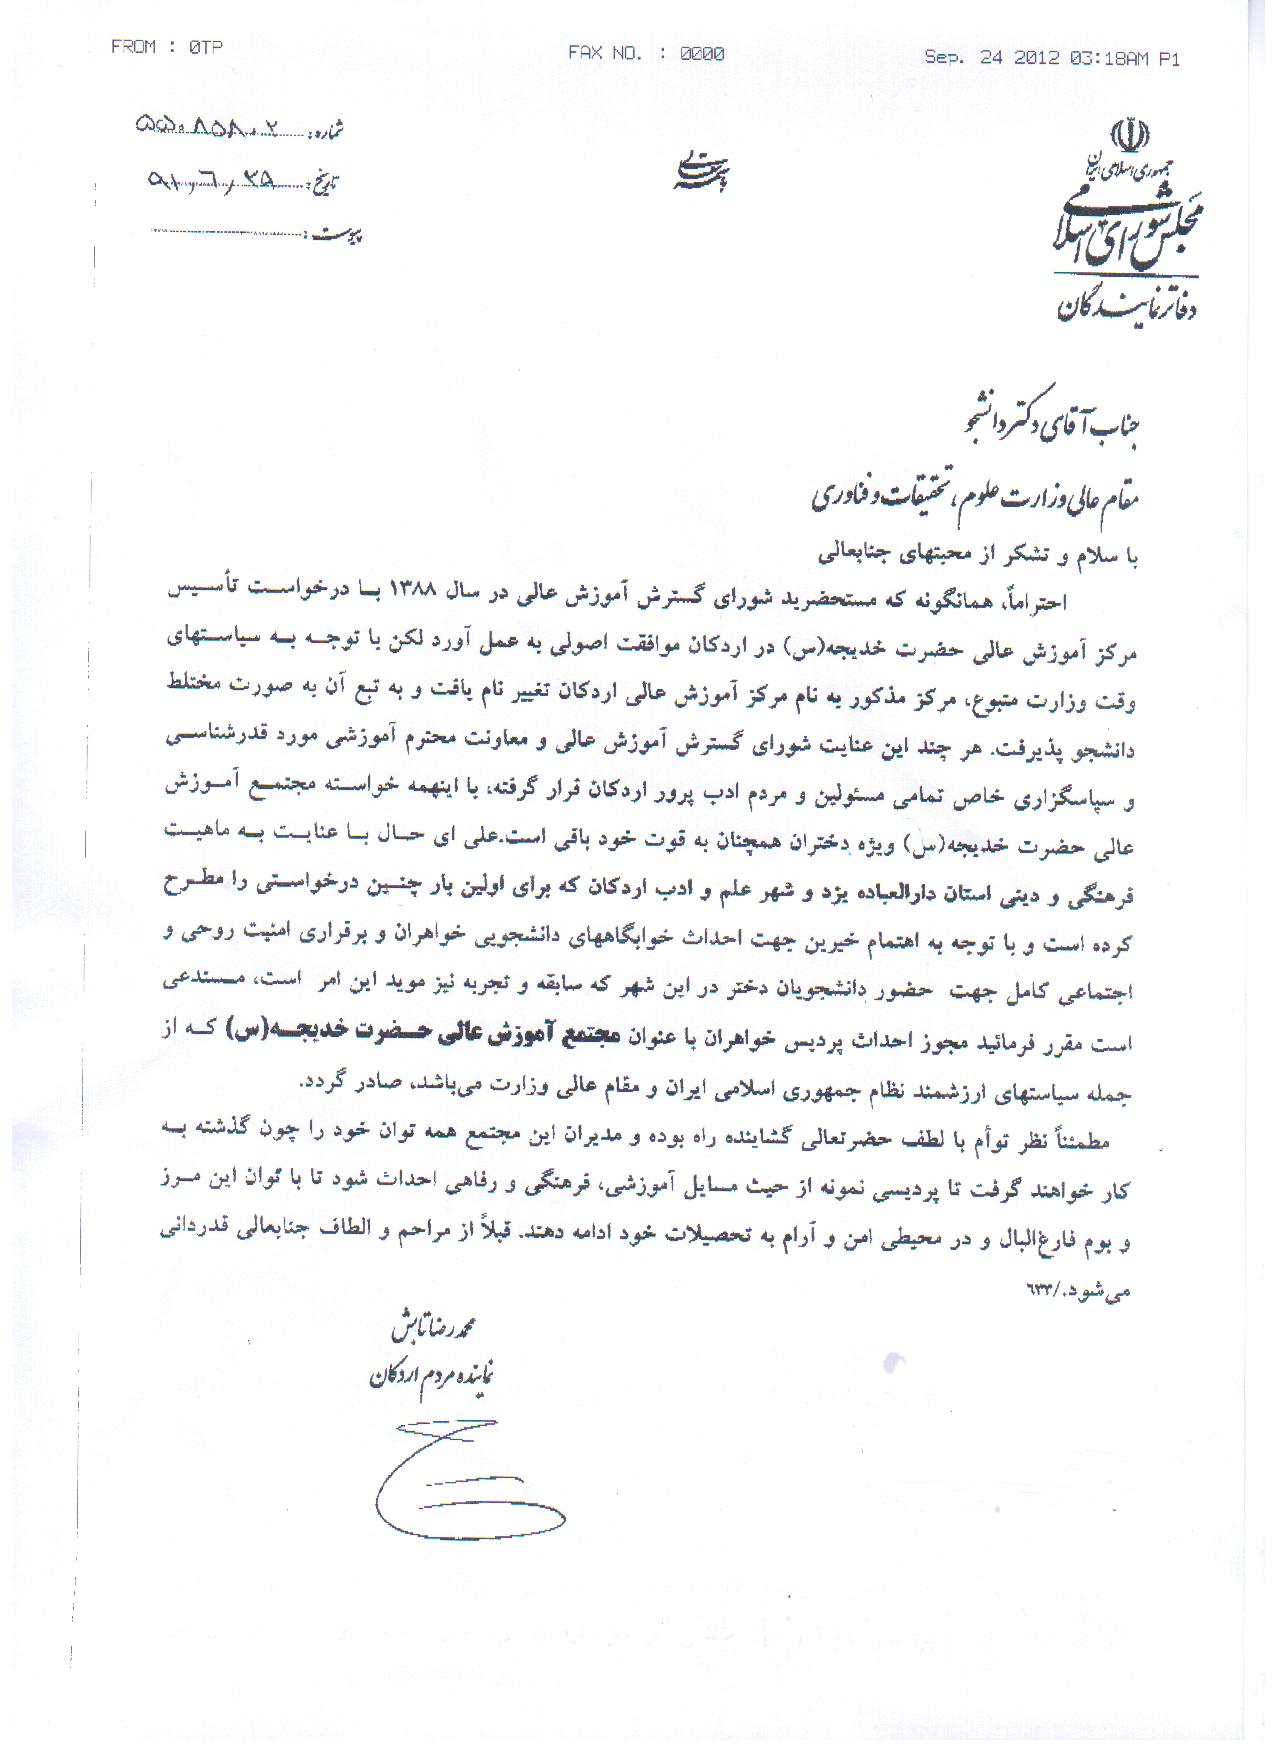 FROM : 0TP FAX NO. : 0000 Sep. 24 2012 03:18AM P1
جمهوری اسلامی ایران
مجلس شورای اسلامی
دفاتر نمایندگان
باسمه تعالی
شماره: ۵۵۰۸۵۸۰۲
تاریخ: ۹۱/۶/۲۵
پیوست:
جناب آقای دکتر دانشجو
مقام عالی وزارت علوم، تحقیقات و فناوری
با سلام و تشکر از محبتهای جنابعالی
احتراماً، همانگونه که مستحضرید شورای گسترش آموزش عالی در سال ۱۳۸۸ با درخواست تأسیس
مرکز آموزش عالی حضرت خدیجه(س) در اردکان موافقت اصولی به عمل آورد لکن با توجه به سیاستهای
وقت وزارت متبوع، مرکز مذکور به نام مرکز آموزش عالی اردکان تغییر نام یافت و به تبع آن به صورت مختلط
دانشجو پذیرفت. هر چند این عنایت شورای گسترش آموزش عالی و معاونت محترم آموزشی مورد قدرشناسی
و سپاسگزاری خاص تمامی مسئولین و مردم ادب پرور اردکان قرار گرفته، با اینهمه خواسته مجتمع آموزش
عالی حضرت خدیجه(س) ویژه دختران همچنان به قوت خود باقی است.علی ای حال با عنایت به ماهیت
فرهنگی و دینی استان دارالعباده یزد و شهر علم و ادب اردکان که برای اولین بار چنین درخواستی را مطرح
کرده است و با توجه به اهتمام خیرین جهت احداث خوابگاههای دانشجویی خواهران و برقراری امنیت روحی و
اجتماعی کامل جهت حضور دانشجویان دختر در این شهر که سابقه و تجربه نیز موید این امر است، مستدعی
است مقرر فرمائید مجوز احداث پردیس خواهران با عنوان مجتمع آموزش عالی حضرت خدیجه(س) که از
جمله سیاستهای ارزشمند نظام جمهوری اسلامی ایران و مقام عالی وزارت می‌باشد، صادر گردد.
مطمئناً نظر توأم با لطف حضرتعالی گشاینده راه بوده و مدیران این مجتمع همه توان خود را چون گذشته به
کار خواهند گرفت تا پردیسی نمونه از حیث مسایل آموزشی، فرهنگی و رفاهی احداث شود تا با توان این مرز
و بوم فارغ‌البال و در محیطی امن و آرام به تحصیلات خود ادامه دهند. قبلاً از مراحم و الطاف جنابعالی قدردانی
می‌شود./۶۳۳
محمدرضا تابش
نماینده مردم اردکان